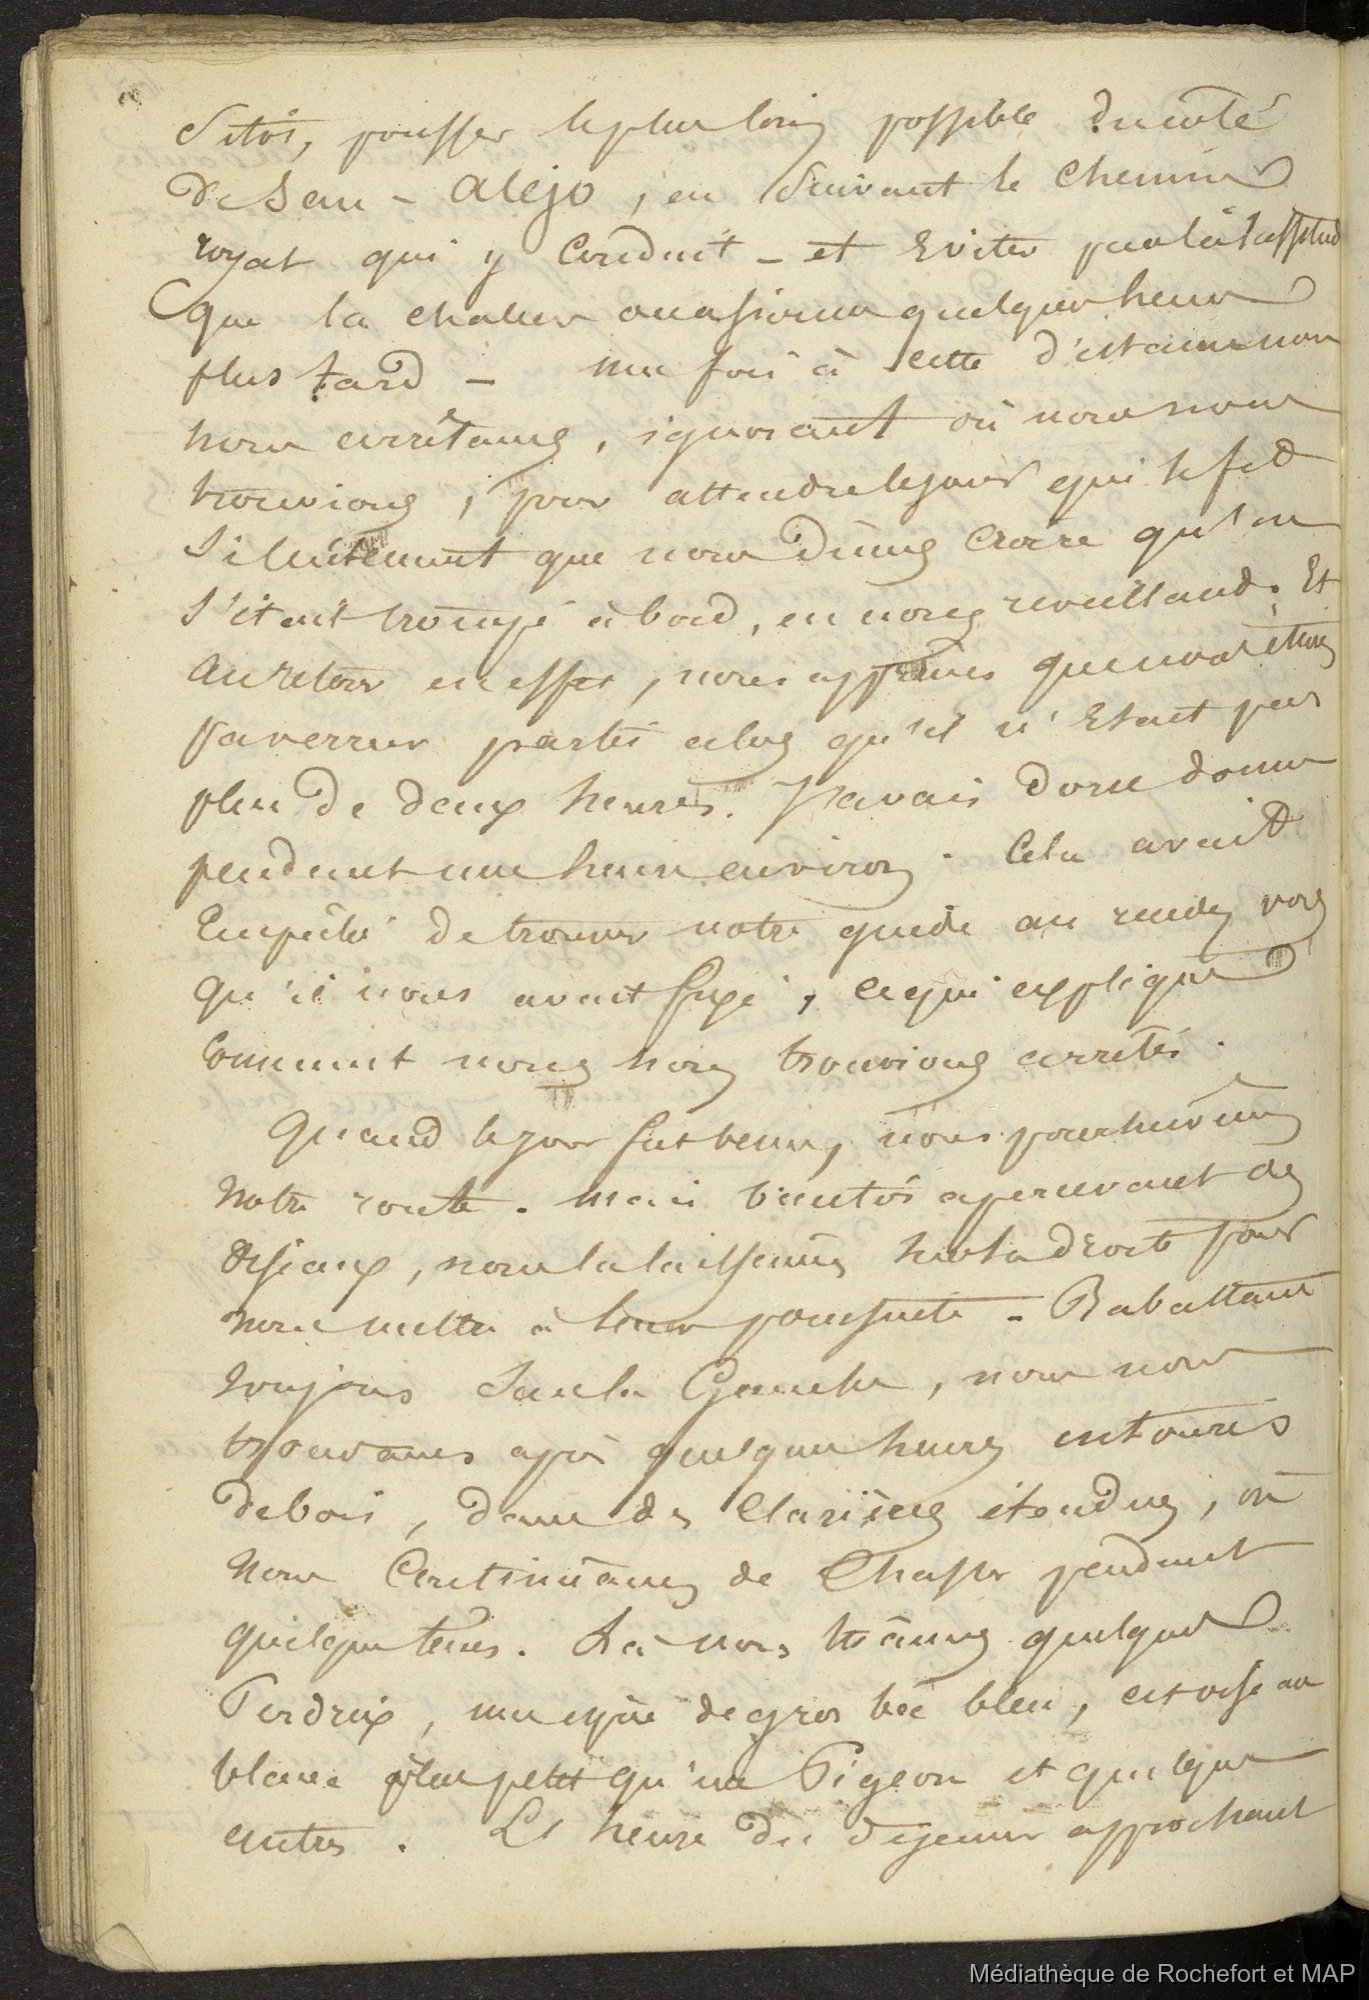 Sitôs, pousser le plus loin possible du coté
de San - Alejo, en suivant le chemin
royal qui y conduit - et eviter par là
que la chaleur occasionna quelques heures
plus tard - une fois à cette distance nous
nous arrêtames, ignorant où nous nous
trouvions, pour attendre le jour qui se fit
si lentement que nous dûmes croire qu'on
s'était trompé à bord, en nous reveillant. Et
au retour en effet, nous apprimes que nous étions
par erreur partis alors qu'il n'etait pas
plus de deux heures. J'avais donc dormi
pendant une heure environ. Cela avait
empêché de trouver notre guide au rendez vous
qu'il nous avait fixé, ce qui explique
comment nous nous trouvions arretés.
Quand le jour fut venu, nous poursuivimes
notre route. Mais bientôs apercevant des
oiseaux, nous la laissâmes sur la droite pour
nous mettre à leur poursuite - Rabattant
toujours sur la Gauche, nous nous
trouvames après quelques heures entourés
de bois, dans des clarières étendues, où
nous continuâmes de chasser pendant
quelques tems. Là nous tuâmes quelques
Perdrix, une espèce de gros bec bleu, cet oiseau
blanc plus petit qu'un Pigeon et quelques
autres. L'heure du déjeuner approchant
Médiathèque de Rochefort et MAP